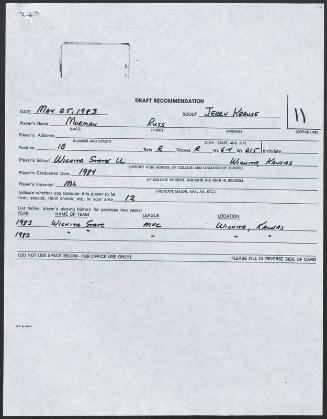 DRAFT RECOMMENDATION
DATE MAY 25, 1983 SCOUT JERRY KRAUSE 11
Player's Name MORMAN RUSS
(LAST) (FIRST) (MIDDLE) (OFFICE USE)
Player's Address
(NUMBER AND STREET) (CITY, STATE, AND ZIP)
Position 1B Bats R Throws R Ht. 6-4 Wt. 215 Birthdate
Player's School WICHITA STATE U WICHITA, KANSAS
(SPECIFY HIGH SCHOOL OR COLLEGE AND LOCATION OF SCHOOL)
Player's Graduation Date 1984
(IF COLLEGE OR BEKE, INDICATE HIS YEAR IN SCHOOL)
Player's Potential ML
(INDICATE MAJOR, AAA, AA, ETC.)
Indicate whether you consider this player to be
first, second, third choice, etc. in your area 12
List below, player's playing history for previous two years:
YEAR NAME OF TEAM LEAGUE LOCATION
1983 WICHITA STATE MVC WICHITA, KANSAS
1982 " " " "
(DO NOT USE SPACE BELOW - FOR OFFICE USE ONLY) PLEASE FILL IN REVERSE SIDE OF CARD